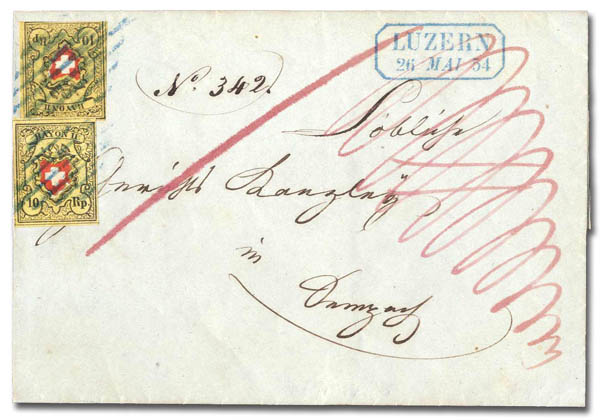 RAYON II.
10 Rp.
RAYON II.
10 Rp.
LUZERN
26 MAI 54
No. 342.
Löbliche
Gerichts Kanzley
in